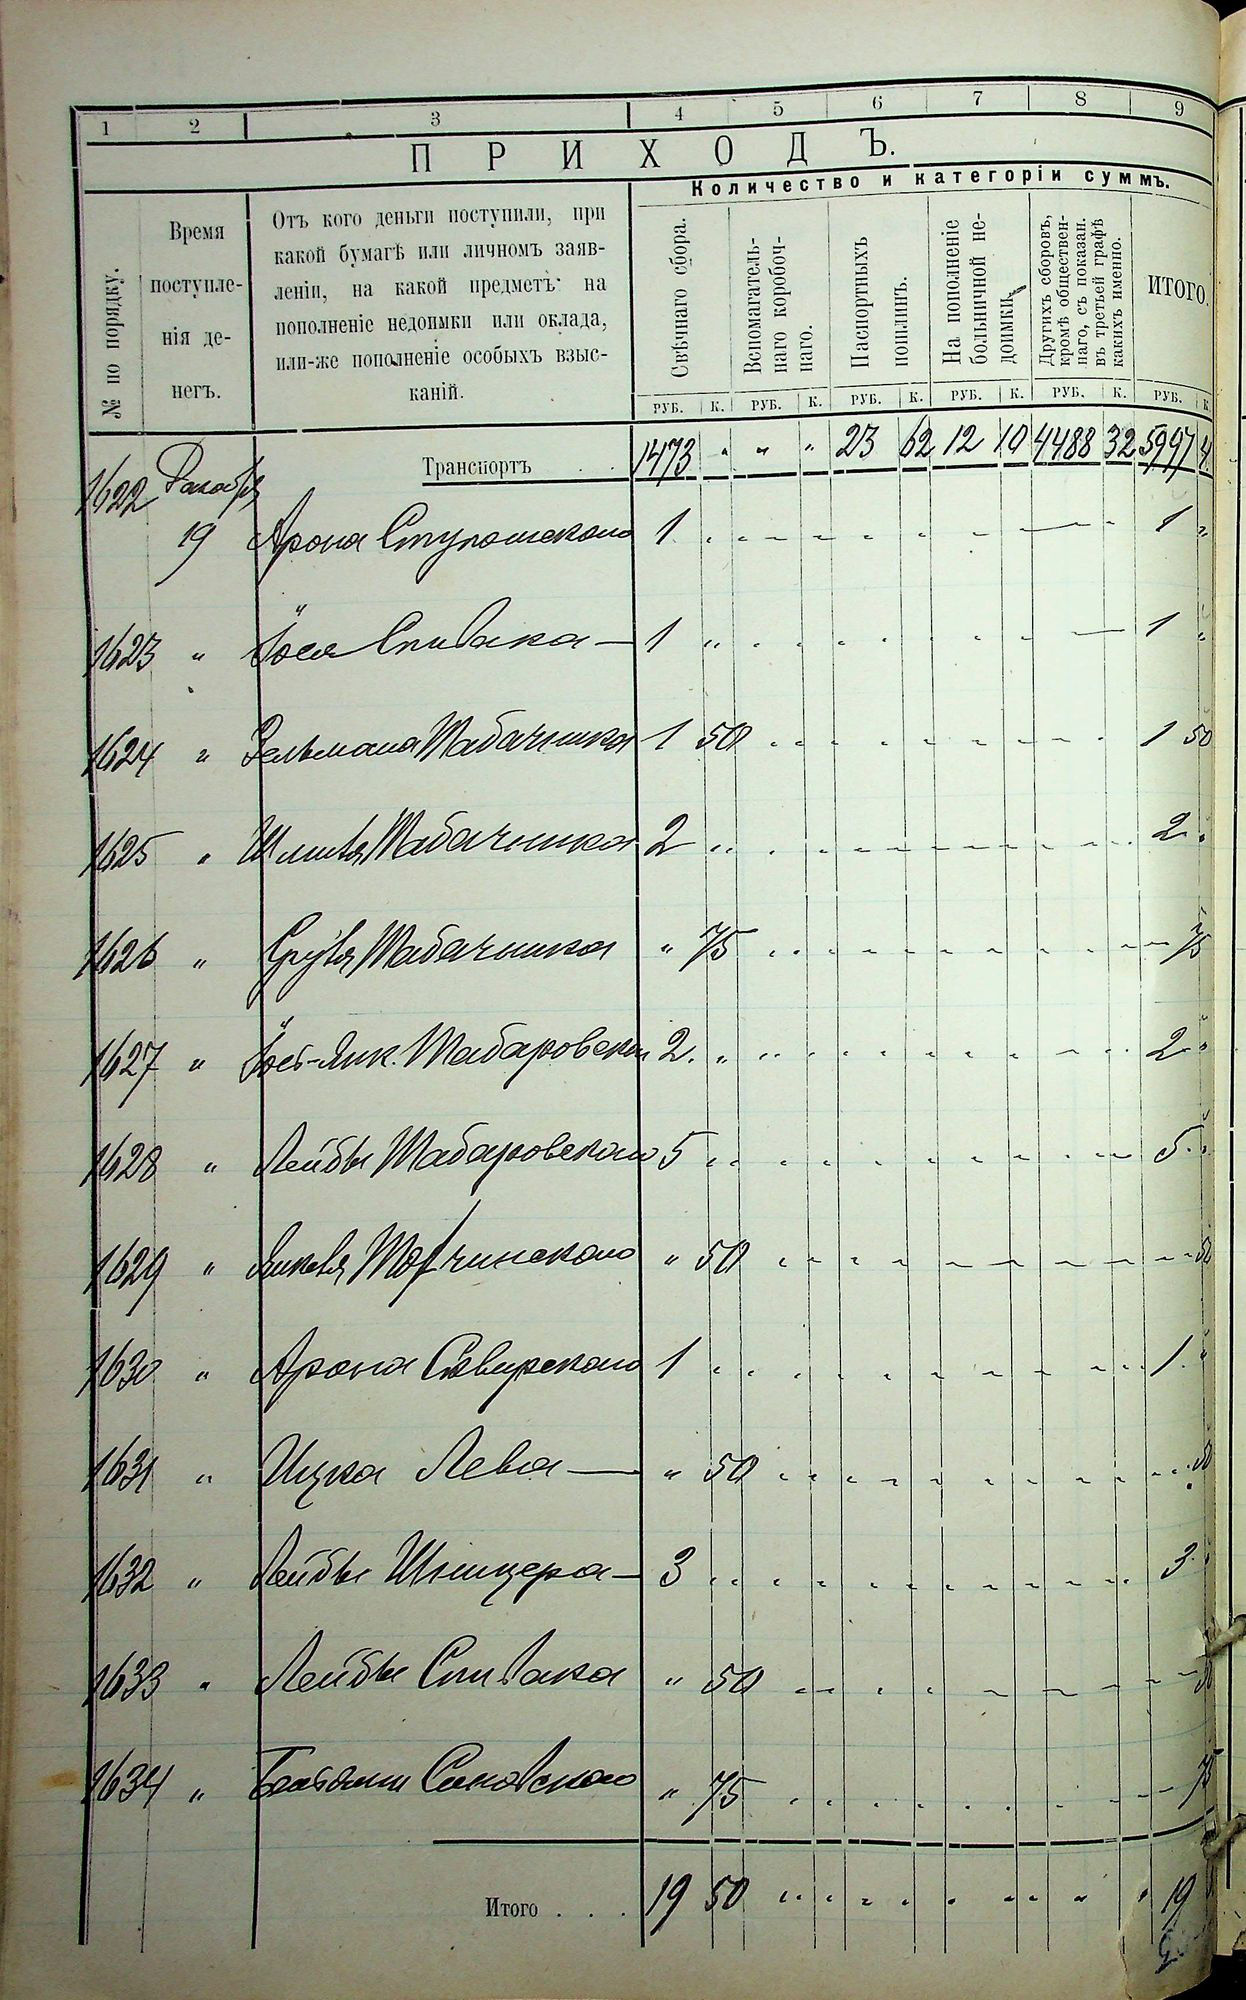 1 2 3 4 5 6 7 8 9
ПРИХОДЪ.
Количество и категоріи суммъ.
№ по порядку.
Время поступле-нія де-негъ.
Отъ кого деньги поступили, при
какой бумагѣ или личномъ заяв-
леніи, на какой предметъ на
пополненіе недоимки или оклада,
или-же пополненіе особыхъ взыс-
каній.
Свѣчнаго сбора.
Вспомагатель-
наго коробоч-
наго.
Паспортныхъ
пошлинъ.
На пополненіе
больничной не-
доимки.
Другихъ сборовъ,
кромѣ обществен-
наго, съ показан.
въ третьей графѣ
какихъ именно.
ИТОГО.
РУБ. К. РУБ. К. РУБ. К. РУБ. К. РУБ. К. РУБ. К.
Транспортъ . . 1473 " " " 23 62 12 10 4488 32 5997 4
1622 Декабря
19 Арона 1 1 "
1623 " Іося Спивака — 1 " 1 "
1624 " Зельмана Табачника 1 50 1 50
1625 " Шмиля Табачника 2 " 2 "
1626 " Сруля Табачника " 75 75
1627 " Іось-Янк. 2 " 2 "
1628 " Лейбы 5 " 5 "
1629 " Янкеля " 50 50
1630 " Арона Сквирскаго 1 " 1 "
1631 " Ицка Лева — " 50 50
1632 " Лейбы Шницера — 3 " 3 "
1633 " Лейбы Спивака " 50 50
1634 " " 75 75
Итого . . . 19 50 19